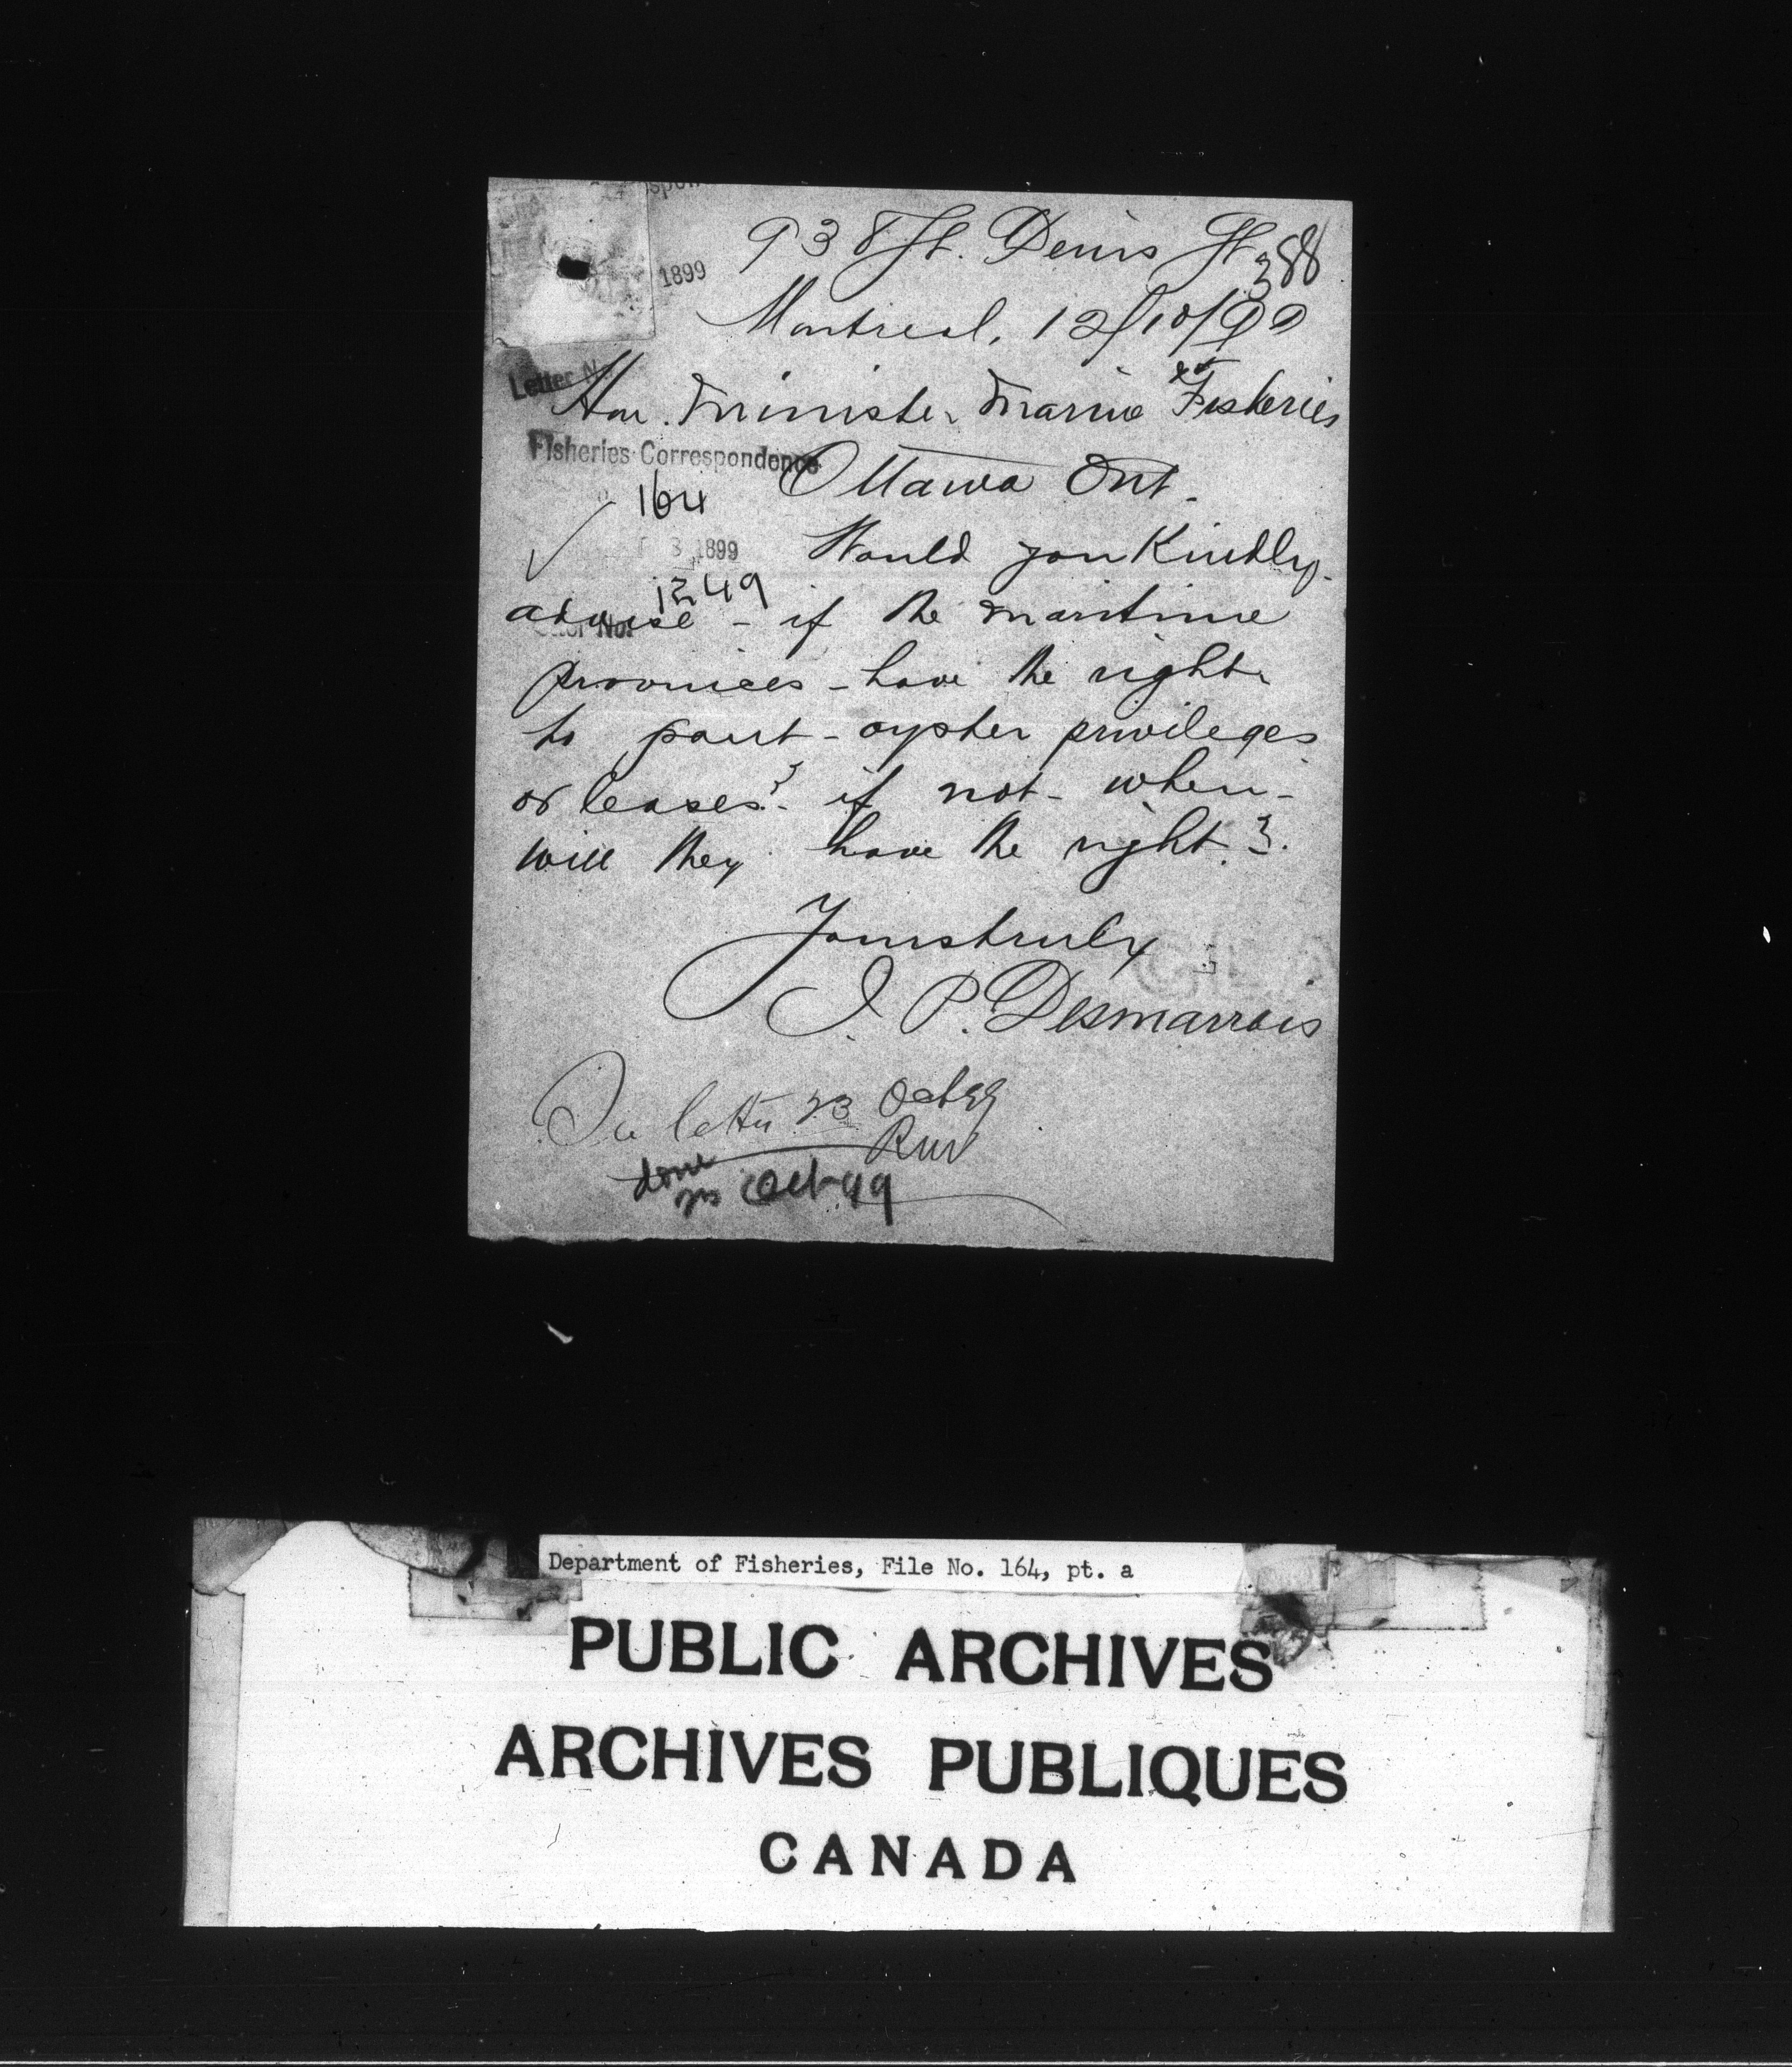 938 St. Denis St
388
1899
Montreal, 12/10/99
Letter No
Hon. Minister Marine et Fisheries
Fisheries Correspondence
Ottawa Ont.
164
Would you Kindly
3 1899
1249
advise - if the maritime
No.
provinces - have the right
to grant - oyster privileges
or leases? - if not - when -
will they have the right?
Yours truly
J. P. Desmarrais
See letter 23 Oct 99
done
Oct 99
Department of Fisheries, File No. 164, pt. a
PUBLIC ARCHIVES
ARCHIVES PUBLIQUES
CANADA